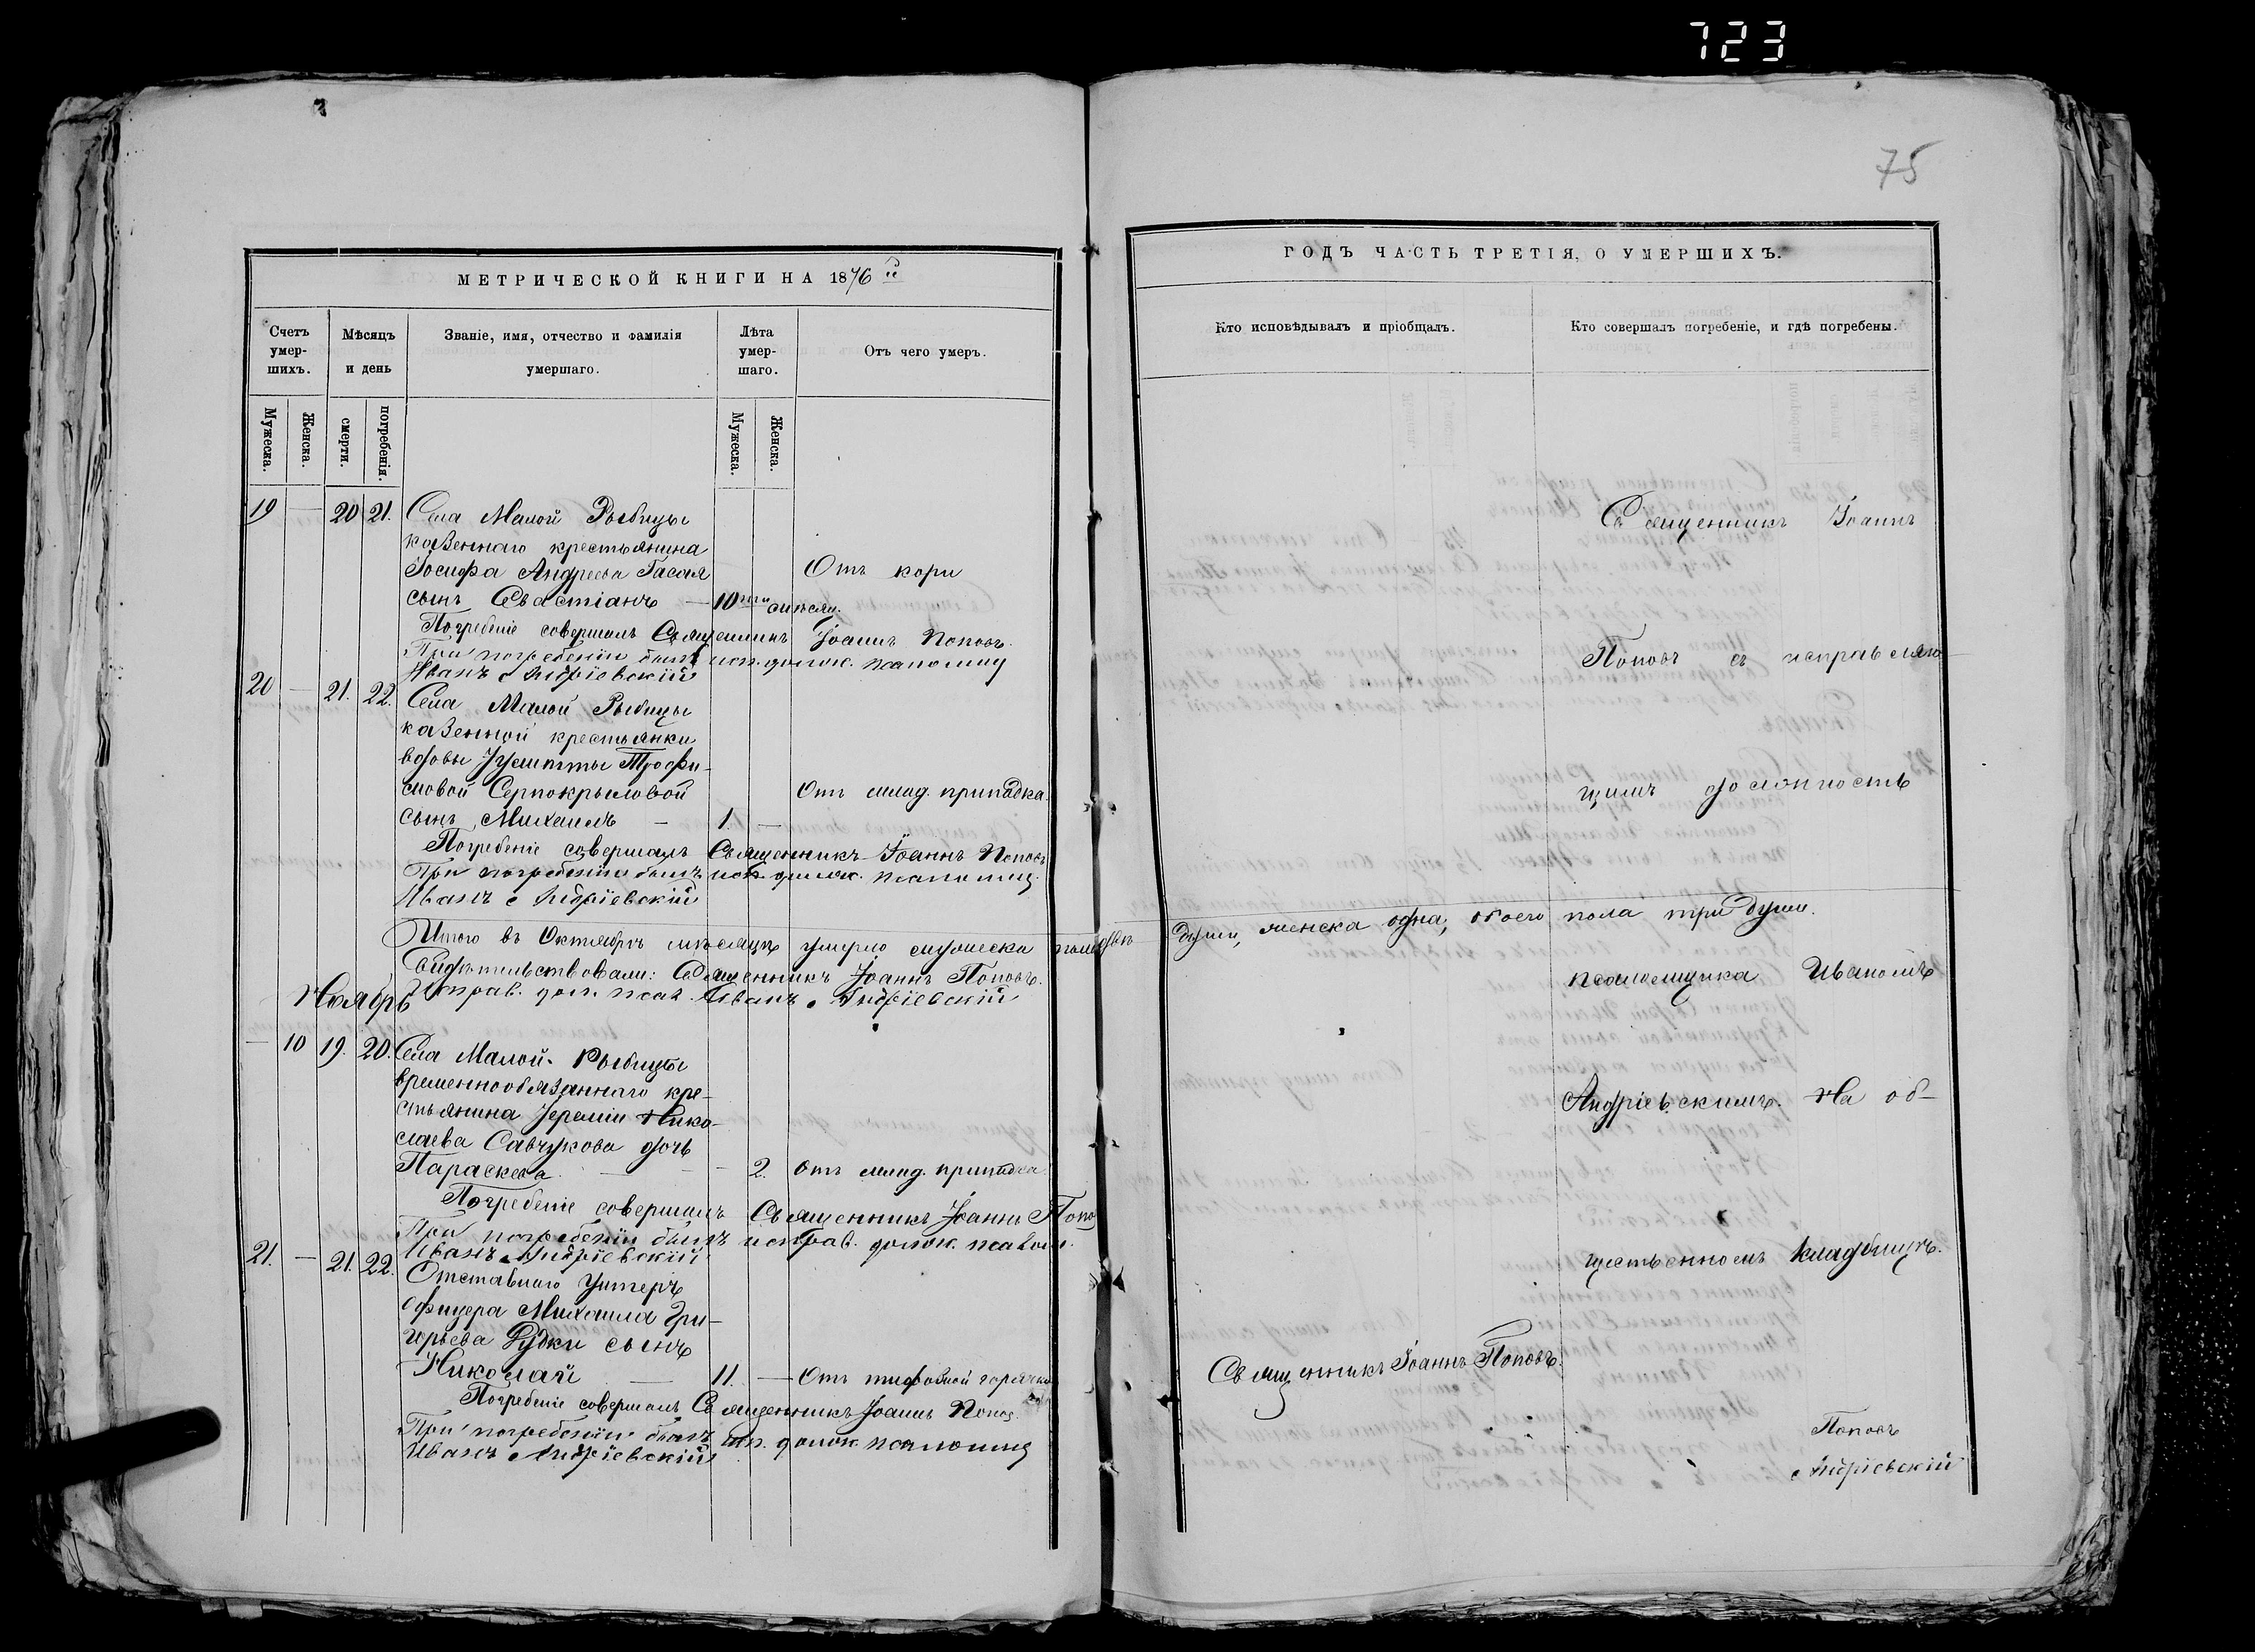 723
75
МЕТРИЧЕСКОЙ КНИГИ НА 1876 й
Счетъ умер- шихъ.
Мѣсяцъ и день
Званіе, имя, отчество и фамилія умершаго.
Лѣта умер- шаго.
Отъ чего умеръ.
Мужеска.
Женска.
смерти.
погребенія.
Мужеска.
Женска.
19 — 20 21. Села Малой Рыбницы
казеннаго крестьянина
Іосифа Андреева Гасая Отъ кори
сынъ Севастіанъ — 10ти мѣсяц.
Погребеніе совершалъ Священникъ Іоаннъ Поповъ.
При погребеніи былъ исп. долж. псаломщ
Иванъ Андріевскій
20 — 21. 22. Села Малой Рыбницы
казенной крестьянки
вдовы Трофи-
мовой Серпокрыловой Отъ млад. припадка.
сынъ Михаилъ — 1. —
Погребеніе совершалъ Священникъ Іоаннъ Поповъ
При погребеніи былъ исп. долж. псаломщ.
Иванъ Андріевскій
Итого въ Октябрѣ мѣсяцѣ умерло мужеска пола двѣ
Свидѣтельствовали: Священникъ Іоаннъ Поповъ.
Исправ. дол. псал. Иванъ Андріевскій
Ноябрь
— 10 19. 20. Села Малой Рыбницы
временнообязаннаго кре-
стьянина Іереміи Нико-
лаева Савчукова дочь
Параскева — — 2. Отъ млад. припадка
Погребеніе совершалъ Священникъ Іоаннъ Попо
При погребеніи былъ исправ. долж. псалом.
Иванъ Андріевскій
21. — 21. 22. Отставнаго Унтеръ
Офицера Михаила Гри-
горьева Рудки сынъ
Николай — 11. — Отъ тифозной горячки
Погребеніе совершалъ Священникъ Іоаннъ Попов
При погребеніи былъ исп. долж. псаломщ
Иванъ Андріевскій
ГОДЪ ЧАСТЬ ТРЕТІЯ, О УМЕРШИХЪ.
Кто исповѣдывалъ и пріобщалъ.
Кто совершалъ погребеніе, и гдѣ погребены.
Священникъ Іоаннъ
Поповъ съ исправляю-
щимъ должность
души, женска одна, обоего пола три души.
псаломщика Иваномъ
Андріевскимъ. На об-
щественномъ кладбищѣ.
Священникъ Іоаннъ Поповъ.
Поповъ
Андріевскій